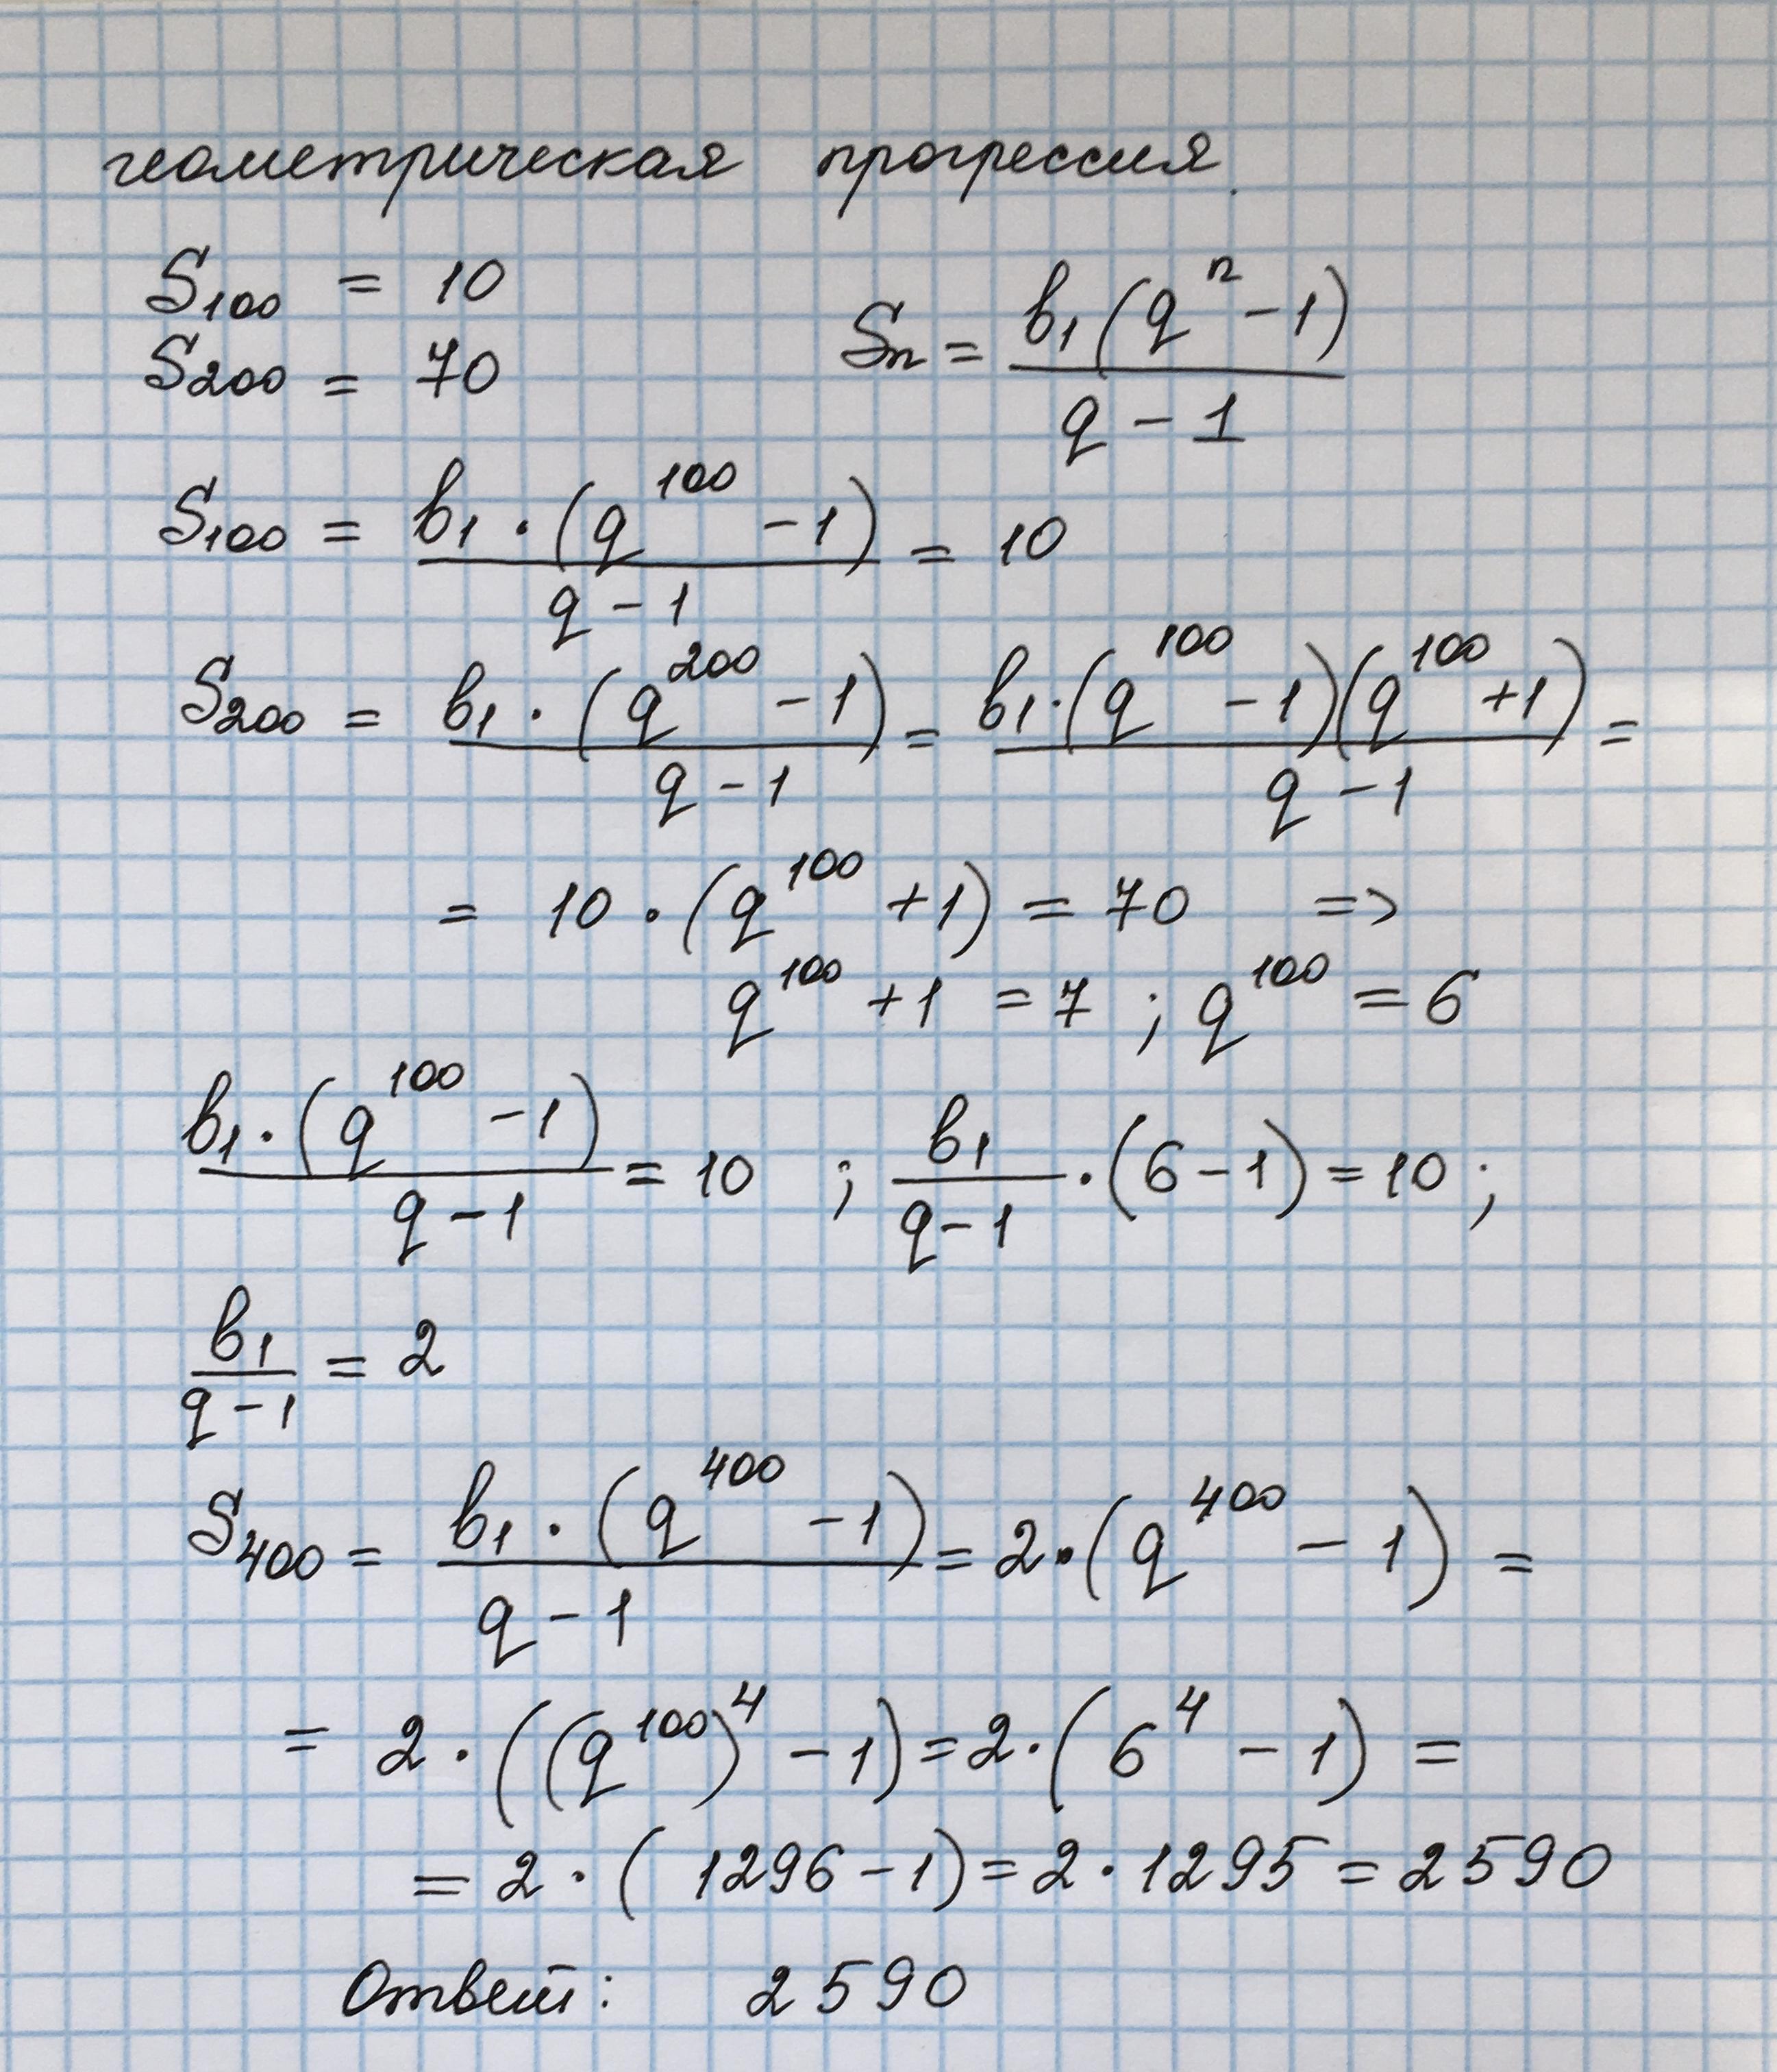 геометрическая прогрессия.
S₁₀₀ = 10
S₂₀₀ = 70
Sₙ = b₁(qⁿ - 1) / (q - 1)
S₁₀₀ = b₁·(q¹⁰⁰ - 1) / (q - 1) = 10
S₂₀₀ = b₁·(q²⁰⁰ - 1) / (q - 1) = b₁·(q¹⁰⁰ - 1)(q¹⁰⁰ + 1) / (q - 1) =
= 10·(q¹⁰⁰ + 1) = 70 =>
q¹⁰⁰ + 1 = 7 ; q¹⁰⁰ = 6
b₁·(q¹⁰⁰ - 1) / (q - 1) = 10 ; b₁ / (q - 1) · (6 - 1) = 10 ;
b₁ / (q - 1) = 2
S₄₀₀ = b₁·(q⁴⁰⁰ - 1) / (q - 1) = 2·(q⁴⁰⁰ - 1) =
= 2·((q¹⁰⁰)⁴ - 1) = 2·(6⁴ - 1) =
= 2·(1296 - 1) = 2·1295 = 2590
Ответ: 2590